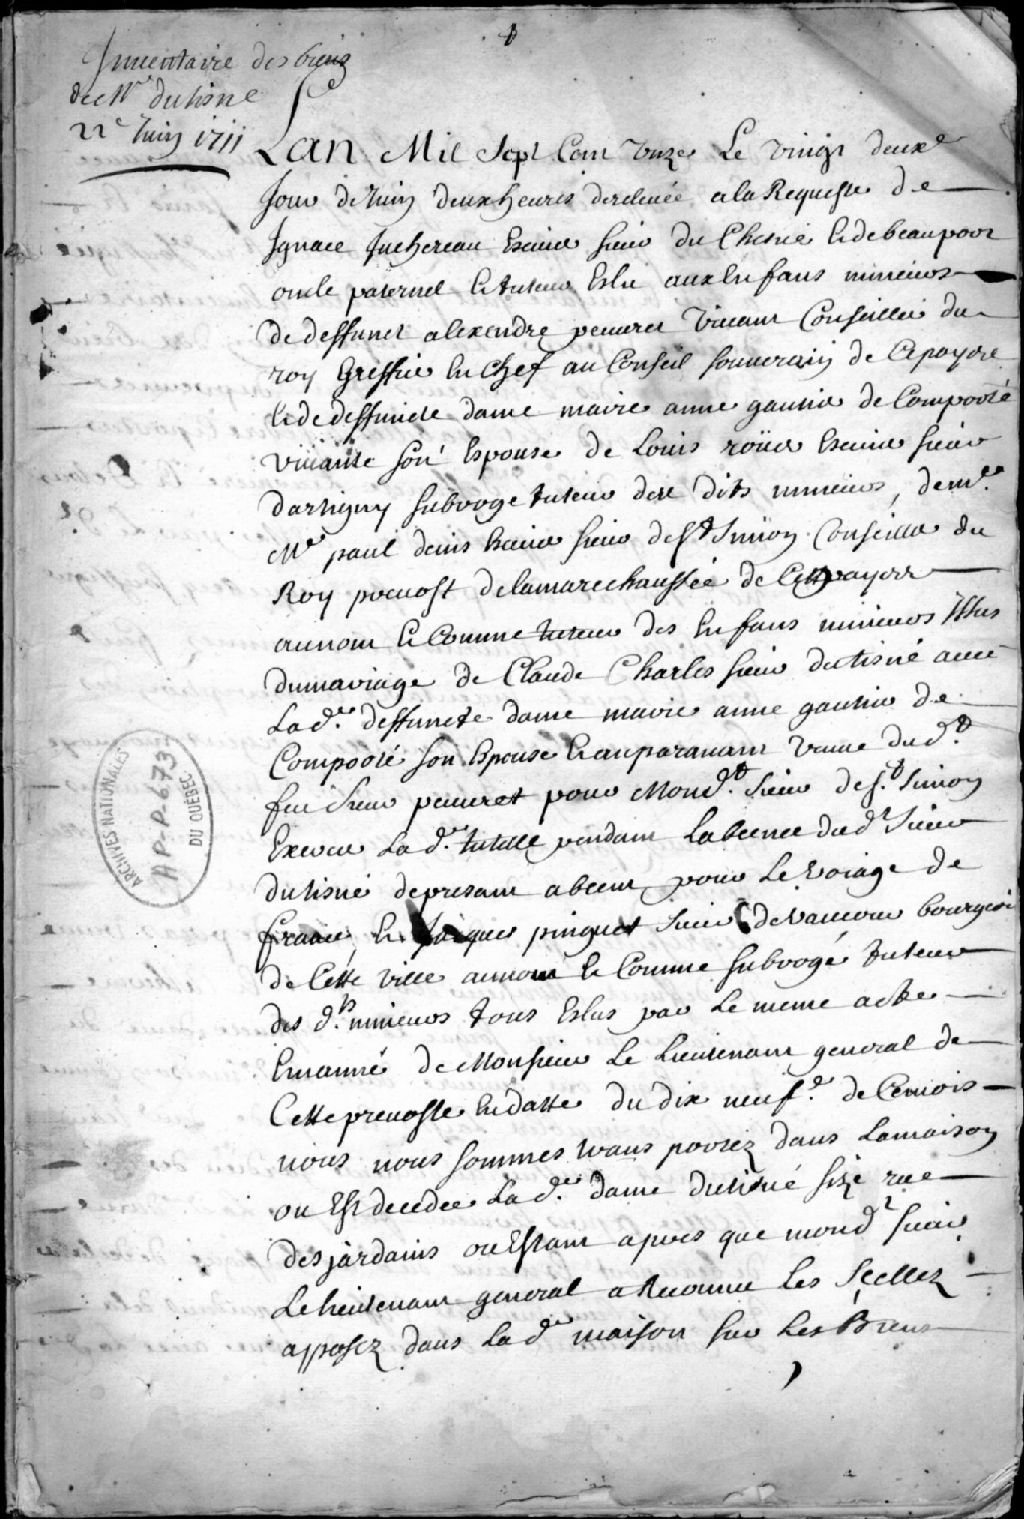 Inventaire des biens
de Mr dutisné
22e Juin 1711
Lan Mil Sept Cent Unze Le vingt deuxe
Jour de Juin deux heures de relevée a la Requeste de
Ignace Juchereau Escuier sieur du Chesné & de beauport
oncle paternel & tuteur Eslu aux Enfans mineurs
de deffunct alexendre peuuret viuant Conseiller du
roy Greffier En Chef au Conseil souuerain de Ce payore
& de deffuncte dame marie anne gautier de Comporté
viuante son Espouse de Louis roüer Escuier sieur
dartigny subroge tuteur desd dits mineurs, de mre
Me paul denis Escuier sieur de St Simon Conseiller du
Roy preuost de la marechaussée de Ce payore
au nom & Comme tuteur des Enfans mineurs Issus
du mariage de Claude Charles sieur dutisné auec
La de deffuncte dame marie anne gautier de
Comporté son Espouse & auparauant veuue dud
feu sieur peuuret pour Mond sieur de St Simon
Exercer La de tutelle pendant Labcence dud Sieur
dutisné de presant abcent pour Le voiage de
france, & Jacques pinguet sieur de vaucour bourgeois
de Cette ville au nom & Comme subrogé tuteur
des ds mineurs tous Eslus par Le meme acte
Emanné de Monsieur Le Lieutenant general de
Cette preuosté En datte du dix neufe de Ce mois
nous nous sommes transportez dans La maison
ou Est decedée La de dame dutisné size rue
des jardains ou Estant apres que mond sieur
Le lieutenant general a Reconnu Les Scellez
apposez dans La de maison sur Les Biens
ARCHIVES NATIONALES
AP-P-673
DU QUÉBEC